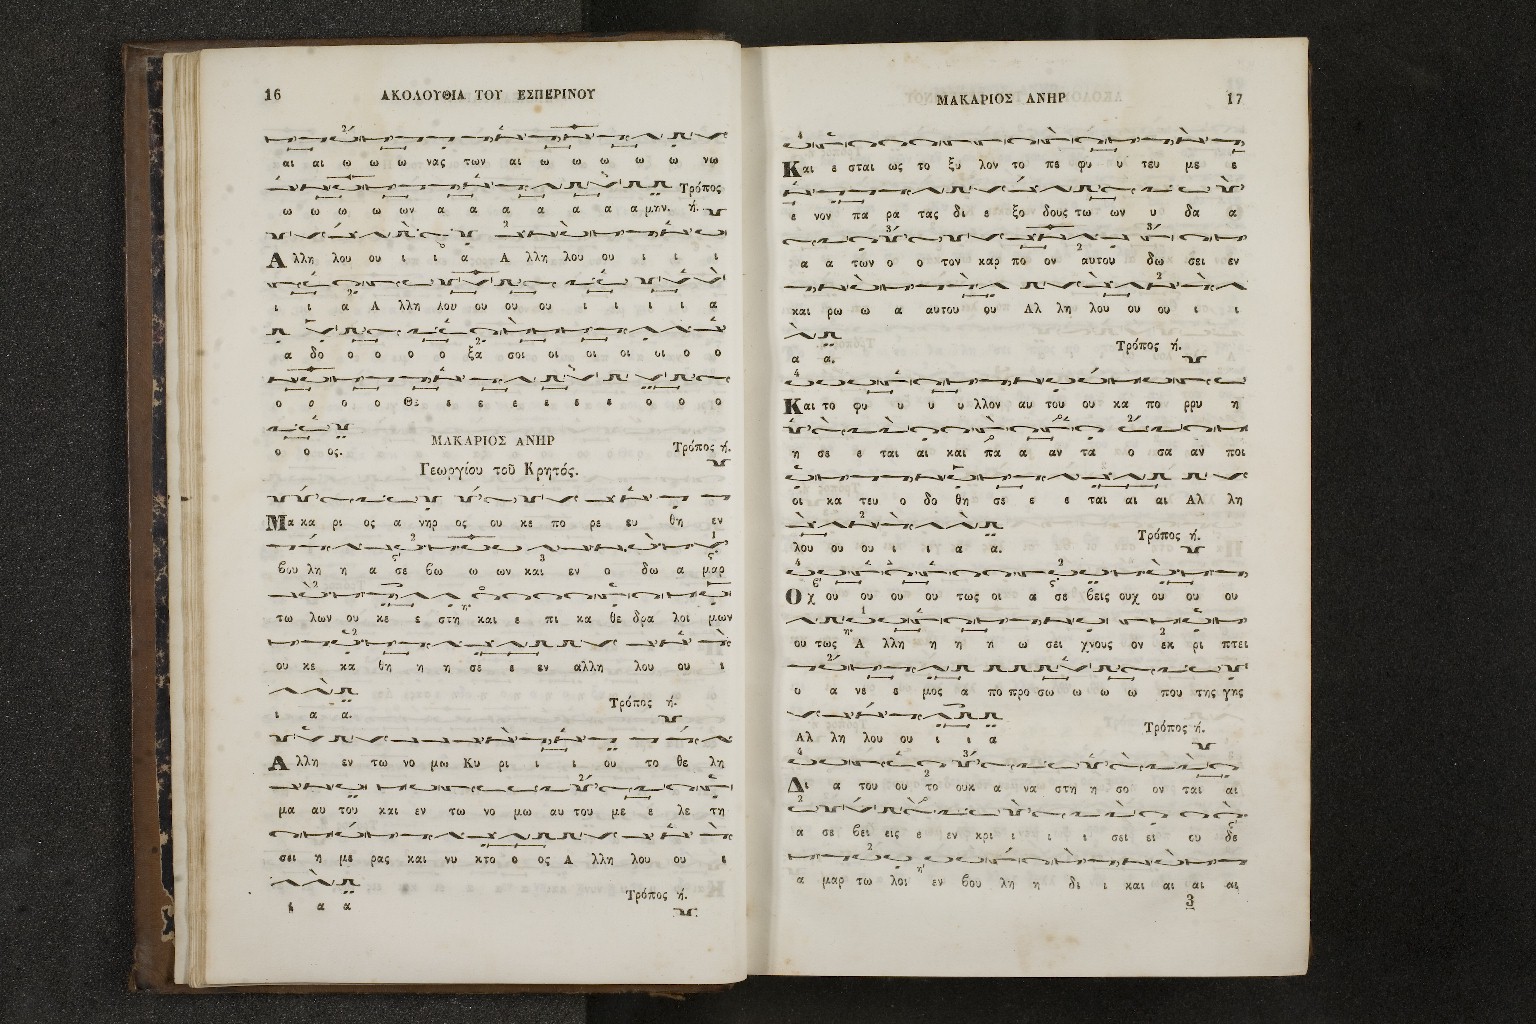 16 ΑΚΟΛΟΥΘΙΑ ΤΟΥ ΕΣΠΕΡΙΝΟΥ
αι αι ω ω ω νας των αι ω ω ω ω ω νω
ω ω ω ω ων α α α α α α α μην. Τρόπος ή.
Α λλη λου ου ι ι α Α λλη λου ου ι ι ι
ι ι α Α λλη λου ου ου ου ι ι ι ι α
α δο ο ο ο ο ξα σοι οι οι οι οι ο ο
ο ο ο ο Θε ε ε ε ε ε ε ο ο ο
ο ο ος.
ΜΑΚΑΡΙΟΣ ΑΝΗΡ Τρόπος ή.
Γεωργίου τοῦ Κρητός.
Μα κα ρι ος α νηρ ος ου κε πο ρε ευ θη εν
βου λη η α σε βω ω ων και εν ο δω α μαρ
τω λων ου κε ε στη και ε πι κα θε δρα λοι μων
ου κε κα θη η η σε ε εν αλλη λου ου ι
ι α α. Τρόπος ή.
Α λλη εν τω νο μω Κυ ρι ι ι ου το θε λη
μα αυ του και εν τω νο μω αυ του με ε λε τη
σει η με ρας και νυ κτο ο ος Α λλη λου ου ι
ι α α Τρόπος ή.
ΜΑΚΑΡΙΟΣ ΑΝΗΡ 17
Και ε σται ως το ξυ λον το πε φυ υ τευ με ε
ε νον πα ρα τας δι ε ξο δους τω ων υ δα α
α α των ο ο τον καρ πο ον αυτου δω σει εν
και ρω ω α αυτου ου Αλ λη λου ου ου ι ι
α α. Τρόπος ή.
Και το φυ υ υ υ λλον αυ του ου κα πο ρρυ η
η σε ε ται αι και πα α αν τα ο σα αν ποι
οι κα τευ ο δο θη σε ε ε ται αι αι Αλ λη
λου ου ου ι ι α α. Τρόπος ή.
Ο χ ου ου ου ου τως οι α σε βεις ουχ ου ου ου
ου τως Α λλη η η η ω σει χνους ον εκ ρι πτει
ο α νε ε μος α πο προ σω ω ω ω ω που της γης
Αλ λη λου ου ι ι α Τρόπος ή.
Δι α του ου το ουκ α να στη η σο ον ται αι
α σε βει εις ε εν κρι ι ι ι σει ει ου δε
α μαρ τω λοι εν βου λη η δι ι και αι αι αι
3